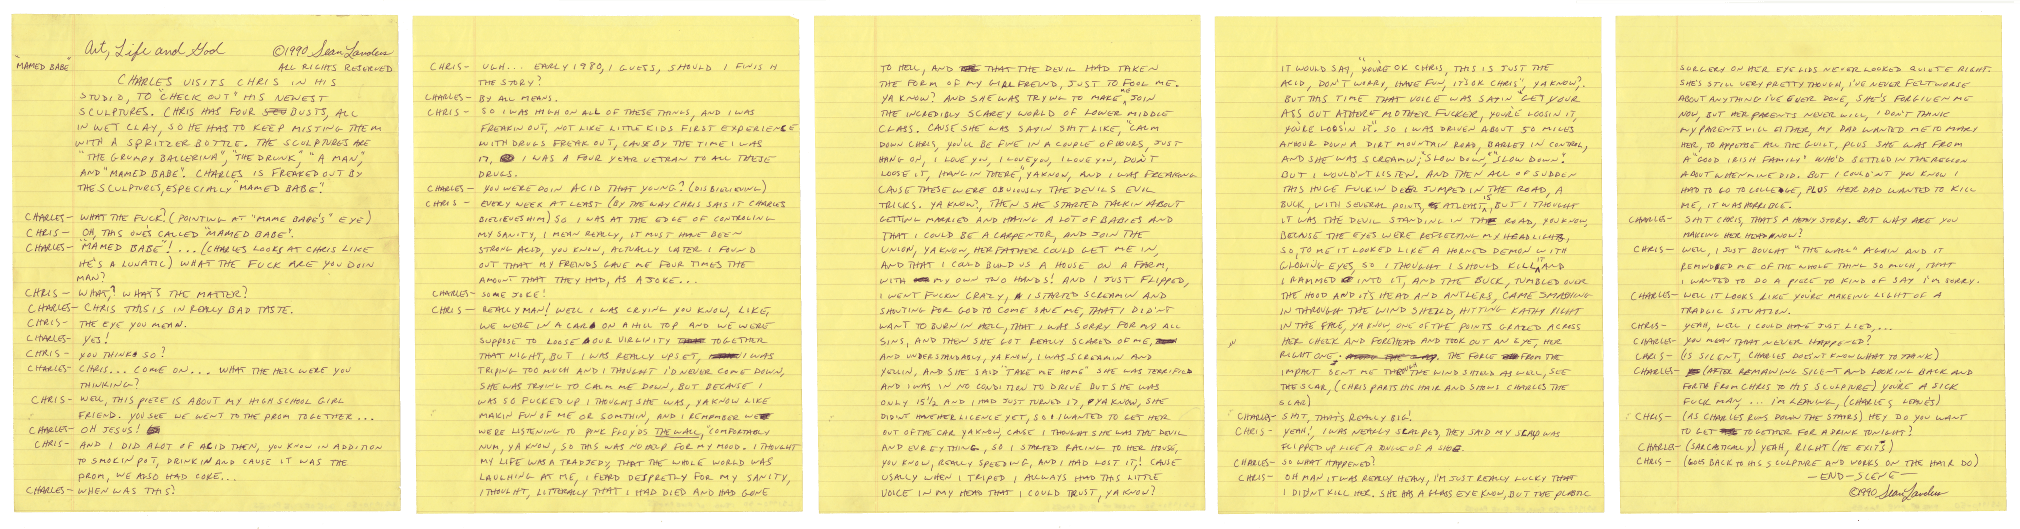 Art, Life and God ©1990 Sean Landers
"MAMED BABE" ALL RIGHTS RESERVED
CHARLES VISITS CHRIS IN HIS
STUDIO, TO "CHECK OUT" HIS NEWEST
SCULPTURES. CHRIS HAS FOUR BUSTS, ALL
IN WET CLAY, SO HE HAS TO KEEP MISTING THEM
WITH A SPRITZER BOTTLE. THE SCULPTURES ARE
"THE GRUMPY BALLERINA", "THE DRUNK", "A MAN",
AND "MAMED BABE". CHARLES IS FREAKED OUT BY
THE SCULPTURES, ESPECIALLY "MAMED BABE".
CHARLES- WHAT THE FUCK? (POINTING AT "MAME BABE'S" EYE)
CHRIS- OH, THIS ONE'S CALLED "MAMED BABE".
CHARLES- "MAMED BABE"! ... (CHARLES LOOKS AT CHRIS LIKE
HE'S A LUNATIC) WHAT THE FUCK ARE YOU DOIN
MAN?
CHRIS- WHAT? WHAT'S THE MATTER?
CHARLES- CHRIS THIS IS IN REALLY BAD TASTE.
CHRIS- THE EYE YOU MEAN.
CHARLES- YES!
CHRIS- YOU THINK SO?
CHARLES- CHRIS... COME ON... WHAT THE HELL WERE YOU
THINKING?
CHRIS- WELL, THIS PIECE IS ABOUT MY HIGH SCHOOL GIRL
FRIEND. YOU SEE WE WENT TO THE PROM TOGETHER...
CHARLES- OH JESUS!
CHRIS- AND I DID ALOT OF ACID THEN, YOU KNOW IN ADDITION
TO SMOKIN POT, DRINKIN AND CAUSE IT WAS THE
PROM, WE ALSO HAD COKE...
CHARLES- WHEN WAS THIS?
CHRIS- UGH... EARLY 1980, I GUESS, SHOULD I FINISH
THE STORY?
CHARLES- BY ALL MEANS.
CHRIS- SO I WAS HIGH ON ALL OF THESE THINGS, AND I WAS
FREAKIN OUT, NOT LIKE LITTLE KIDS FIRST EXPERIENCE
WITH DRUGS FREAK OUT, CAUSE BY THE TIME I WAS
17, I WAS A FOUR YEAR VETRAN TO ALL THESE
DRUGS.
CHARLES- YOU WERE DOIN ACID THAT YOUNG? (DISBIELIEVING)
CHRIS- EVERY WEEK AT LEAST (BY THE WAY CHRIS SAIS IT CHARLES
BIELIEVES HIM) SO I WAS AT THE EDGE OF CONTROLING
MY SANITY, I MEAN REALLY, IT MUST HAVE BEEN
STRONG ACID, YOU KNOW, ACTUALLY LATER I FOUND
OUT THAT MY FREINDS GAVE ME FOUR TIMES THE
AMOUNT THAT THEY HAD, AS A JOKE...
CHARLES- SOME JOKE!
CHRIS- REALLY MAN! WELL I WAS CRYING YOU KNOW, LIKE,
WE WERE IN A CAR ON A HILL TOP AND WE WERE
SUPPOSE TO LOOSE OUR VIRGINITY TOGETHER
THAT NIGHT, BUT I WAS REALLY UPSET, I WAS
TRIPING TOO MUCH AND I THOUGHT I'D NEVER COME DOWN,
SHE WAS TRYING TO CALM ME DOWN, BUT BECAUSE I
WAS SO FUCKED UP I THOUGHT SHE WAS, YA KNOW LIKE
MAKIN FUN OF ME OR SOMTHIN, AND I REMEMBER WE
WERE LISTENING TO PINK FLOYDS THE WALL, "COMFORTABLY
NUM, YA KNOW, SO THIS WAS NO HELP FOR MY MOOD. I THOUGHT
MY LIFE WAS A TRADJEDY, THAT THE WHOLE WORLD WAS
LAUGHING AT ME, I FEARD DESPRETLY FOR MY SANITY,
I THOUGHT, LITTERALLY THAT I HAD DIED AND HAD GONE
TO HELL, AND THAT THE DEVIL HAD TAKEN
THE FORM OF MY GIRLFREIND, JUST TO FOOL ME.
YA KNOW? AND SHE WAS TRYING TO MAKE ME JOIN
THE INCREDIBLY SCAREY WORLD OF LOWER MIDDLE
CLASS. CAUSE SHE WAS SAYIN SHIT LIKE, "CALM
DOWN CHRIS, YOU'LL BE FINE IN A COUPLE OF HOURS, JUST
HANG ON, I LOVE YOU, I LOVE YOU, I LOVE YOU, DON'T
LOOSE IT, HANG IN THERE," YA KNOW, AND I WAS FREAKING
CAUSE THESE WERE OBVIOUSLY THE DEVILS EVIL
TRICKS. YA KNOW?, THEN SHE STARTED TALKIN ABOUT
GETTING MARRIED AND HAVING A LOT OF BABIES AND
THAT I COULD BE A CARPENTOR, AND JOIN THE
UNION, YA KNOW, HER FATHER COULD GET ME IN,
AND THAT I COULD BUILD US A HOUSE ON A FARM,
WITH MY OWN TWO HANDS! AND I JUST FLIPPED,
I WENT FUCKN CRAZY, I STARTED SCREAMIN AND
SHOUTING FOR GOD TO COME SAVE ME, THAT I DIDN'T
WANT TO BURN IN HELL, THAT I WAS SORRY FOR MY ALL
SINS, AND THEN SHE GOT REALLY SCARED OF ME,
AND UNDERSTANDABLY, YA KNOW, I WAS SCREAMIN AND
YELLIN, AND SHE SAID "TAKE ME HOME" SHE WAS TERRIFIED
AND I WAS IN NO CONDITION TO DRIVE BUT SHE WAS
ONLY 15½ AND I HAD JUST TURNED 17, YA KNOW, SHE
DIDNT HAVE HER LICENCE YET, SO I WANTED TO GET HER
OUT OF THE CAR YA KNOW, CAUSE I THOUGHT SHE WAS THE DEVIL
AND EVREYTHING, SO I STARTED RACING TO HER HOUSE,
YOU KNOW, REALLY SPEEDING, AND I HAD LOST IT,! CAUSE
USALLY WHEN I TRIPED I ALLWAYS HAD THIS LITTLE
VOICE IN MY HEAD THAT I COULD TRUST, YA KNOW?
IT WOULD SAY, "YOU'RE OK CHRIS, THIS IS JUST THE
ACID, DON'T WORRY, HAVE FUN, IT'S OK CHRIS", YA KNOW?
BUT THIS TIME THAT VOICE WAS SAYIN "GET YOUR
ASS OUT A THERE MOTHER FUCKER, YOU'RE LOOSIN IT,
YOU'RE LOOSIN IT". SO I WAS DRIVEN ABOUT 50 MILES
AN HOUR DOWN A DIRT MOUNTAIN ROAD, BARLEY IN CONTROL,
AND SHE WAS SCREAMIN, "SLOW DOWN," "SLOW DOWN".
BUT I WOULDN'T LISTEN. AND THEN ALL OF SUDDEN
THIS HUGE FUCKIN DEER JUMPED IN THE ROAD, A
BUCK, WITH SEVERAL POINTS, AT LEAST 15, BUT I THOUGHT
IT WAS THE DEVIL STANDING IN THE ROAD, YOU KNOW,
BECAUSE THE EYES WERE REFLECTING MY HEADLIGHTS,
SO, TO ME IT LOOKED LIKE A HORNED DEMON WITH
GLOWING EYES, SO I THOUGHT I SHOULD KILL IT, AND
I RAMMED INTO IT, AND THE BUCK, TUMBLED OVER
THE HOOD AND IT'S HEAD AND ANTLERS, CAME SMASHING
IN THROUGH THE WIND SHEILD, HITTING KATHY RIGHT
IN THE FACE, YA KNOW, ONE OF THE POINTS GRAZED ACROSS
HER CHECK AND FOREHEAD AND TOOK OUT AN EYE, HER
RIGHT ONE. THE FORCE FROM THE
IMPACT SENT ME THROUGH THE WIND SHEILD AS WELL, SEE
THE SCAR, (CHRIS PARTS HIS HAIR AND SHOWS CHARLES THE
SCAR)
CHARLES- SHIT, THAT'S REALLY BIG!
CHRIS- YEAH!, I WAS NEARLY SCALPED, THEY SAID MY SCALP WAS
FLIPPED UP LIKE A TONGUE OF A SHOE.
CHARLES- SO WHAT HAPPENED?
CHRIS- OH MAN IT WAS REALLY HEAVY, I'M JUST REALLY LUCKY THAT
I DIDN'T KILL HER. SHE HAS A GLASS EYE KNOW, BUT THE PLASTIC
SURGERY ON HER EYE LIDS NEVER LOOKED QUIETE RIGHT.
SHE'S STILL VERY PRETTY THOUGH, I'VE NEVER FELT WORSE
ABOUT ANYTHING I'VE EVER DONE, SHE'S FORGIVEN ME
NOW, BUT HER PARENTS NEVER WILL, I DON'T THINK
MY PARENTS WILL EITHER, MY DAD WANTED ME TO MARRY
HER, TO APPEASE ALL THE GUILT, PLUS SHE WAS FROM
A "GOOD IRISH FAMILY" WHO'D SETTLED IN THE REGION
ABOUT WHEN MINE DID. BUT I COULDN'T YOU KNOW I
HAD TO GO TO COLLEGE, PLUS HER DAD WANTED TO KILL
ME, IT WAS HORRIBLE.
CHARLES- SHIT CHRIS, THAT'S A HEAVY STORY. BUT WHY ARE YOU
MAKEING HER HEAD KNOW?
CHRIS- WELL, I JUST BOUGHT "THE WALL" AGAIN AND IT
REMINDED ME OF THE WHOLE THING SO MUCH, THAT
I WANTED TO DO A PIECE TO KIND OF SAY I'M SORRY.
CHARLES- WELL IT LOOKS LIKE YOU'RE MAKING LIGHT OF A
TRADGIC SITUATION.
CHRIS- YEAH, WELL I COULD HAVE JUST LIED,...
CHARLES- YOU MEAN THAT NEVER HAPPENED?
CHRIS- (IS SILENT, CHARLES DOESN'T KNOW WHAT TO THINK)
CHARLES- (AFTER REMAINING SILENT AND LOOKING BACK AND
FORTH FROM CHRIS TO HIS SCULPTURE) YOU'RE A SICK
FUCK MAN... I'M LEAVING, (CHARLES LEAVES)
CHRIS- (AS CHARLES RUNS DOWN THE STAIRS) HEY DO YOU WANT
TO GET TOGETHER FOR A DRINK TONIGHT?
CHARLES- (SARCASTICALLY) YEAH, RIGHT (HE EXITS)
CHRIS- (GOES BACK TO HIS SCULPTURE AND WORKS ON THE HAIR DO)
—END—SCENE—
©1990 Sean Landers